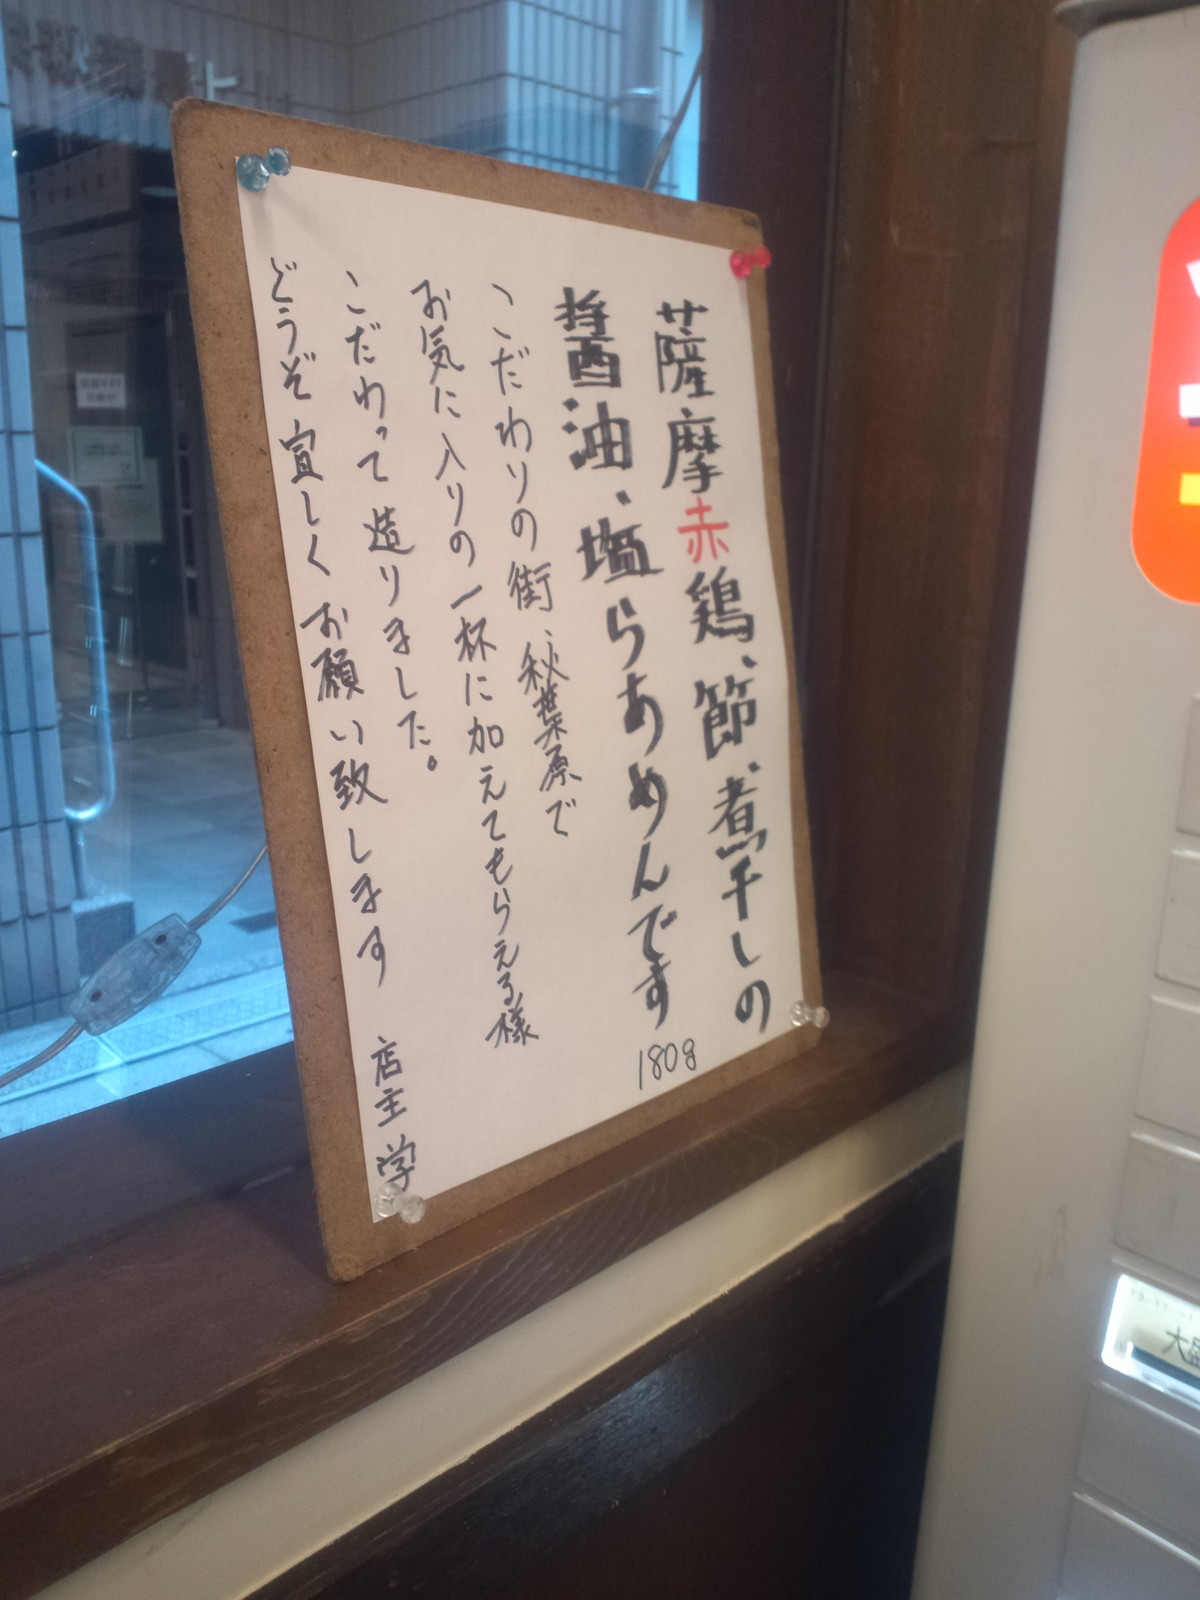 薩摩赤鶏、節、煮干しの
醤油、塩らあめんです
180g
こだわりの街、秋葉原で
お気に入りの一杯に加えてもらえる様
こだわって造りました。
どうぞ宜しくお願い致します
店主 学
大盛